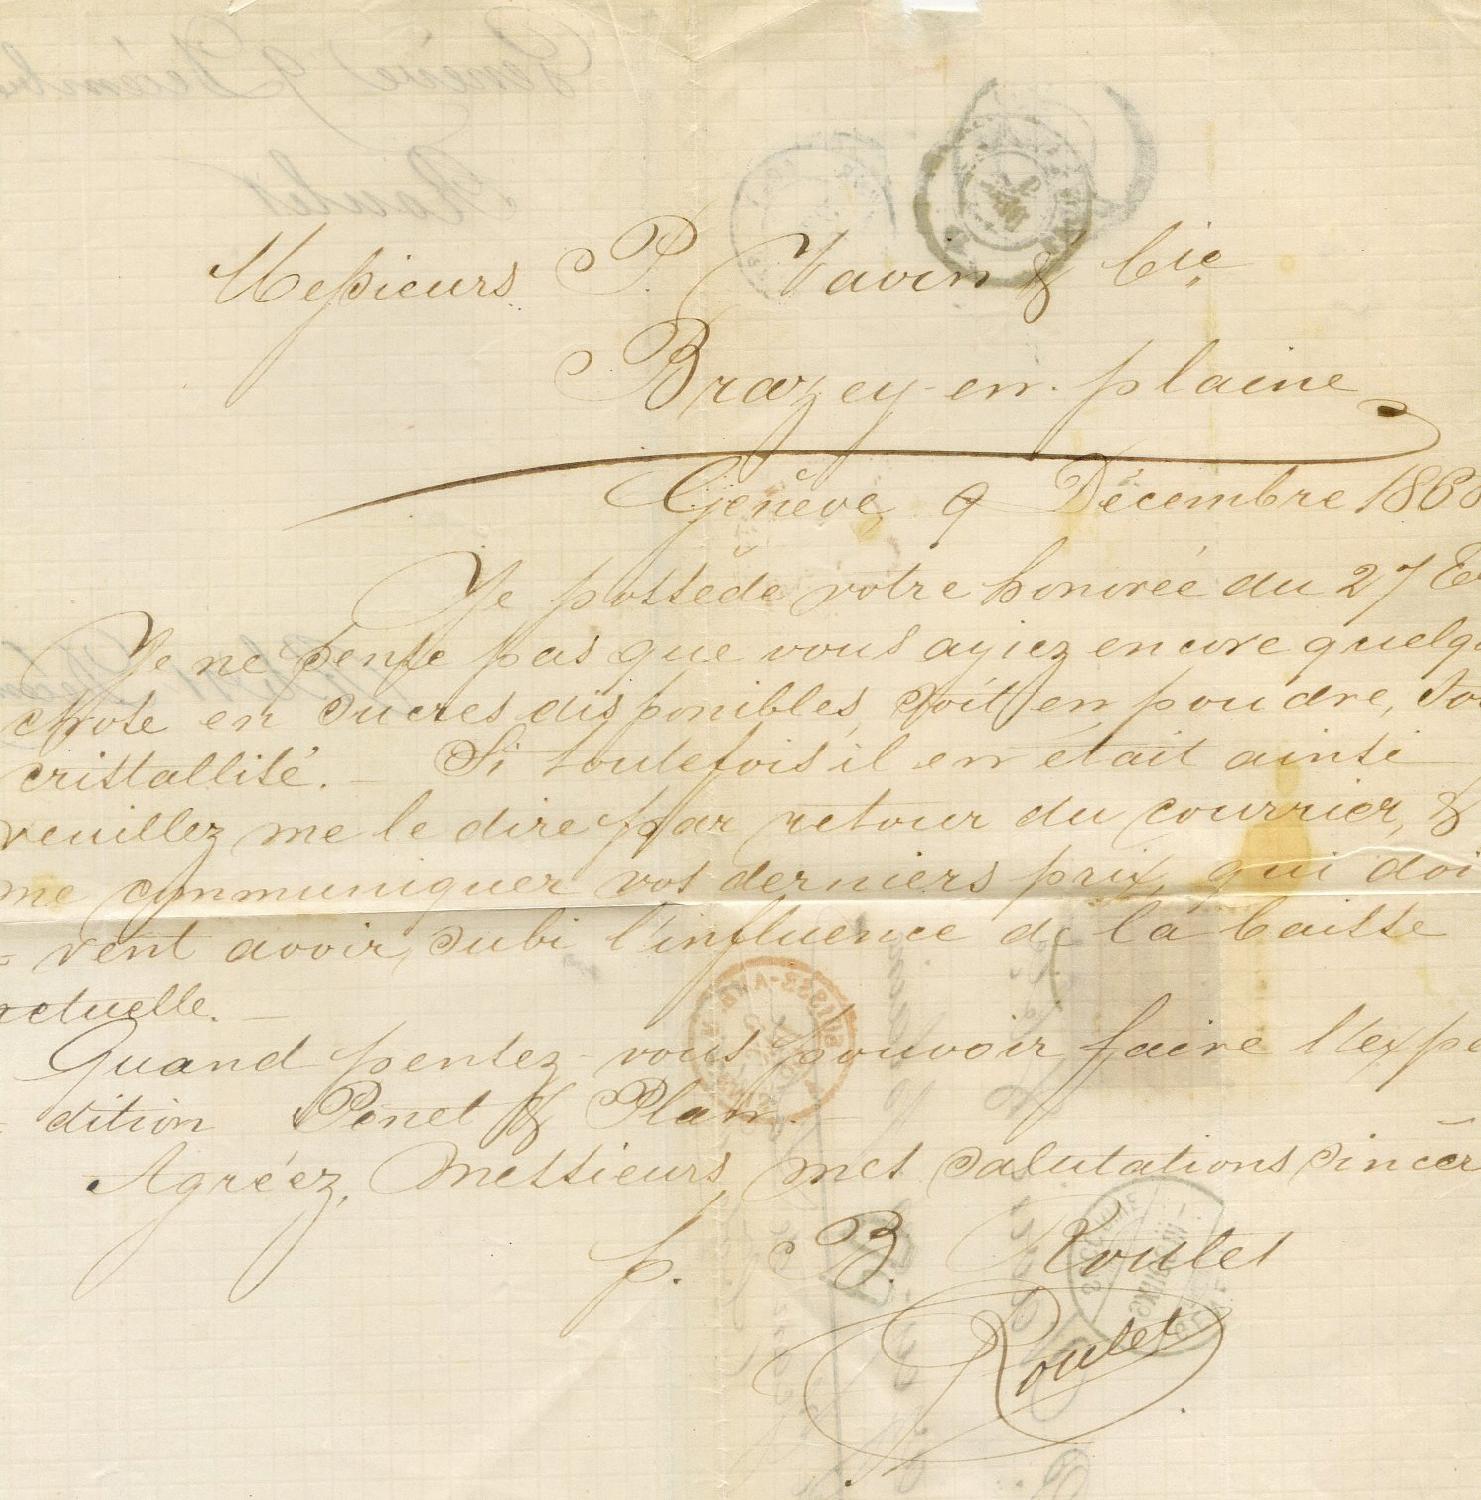 Messieurs P. Vavin & Cie
Brazey-en-plaine
Genève, 9 Décembre 186
Je possède votre honorée du 27 
Je ne pense pas que vous ayiez encore quelqu
chose en sucres disponibles, soit en poudre, soi
cristallisé. — Si toutefois il en était ainsi
veuillez me le dire par retour du courrier, &
me communiquer vos derniers prix, qui doi
= vent avoir subi l'influence de la baisse
actuelle. —
Quand pensez-vous pouvoir faire l'expé
= dition Penet & Plan. —
Agréez, Messieurs, mes salutations sincèr
p. B. Roulet
Roulet